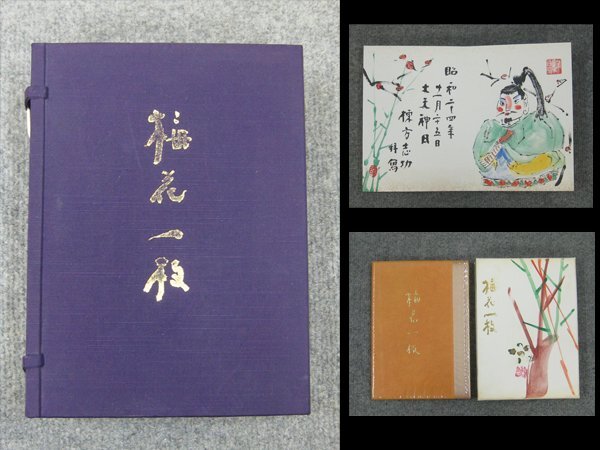 梅花一枝
昭和二十四年
十一月二十五日
大天神日
棟方志功
拝写
梅花一枝
梅花一枝